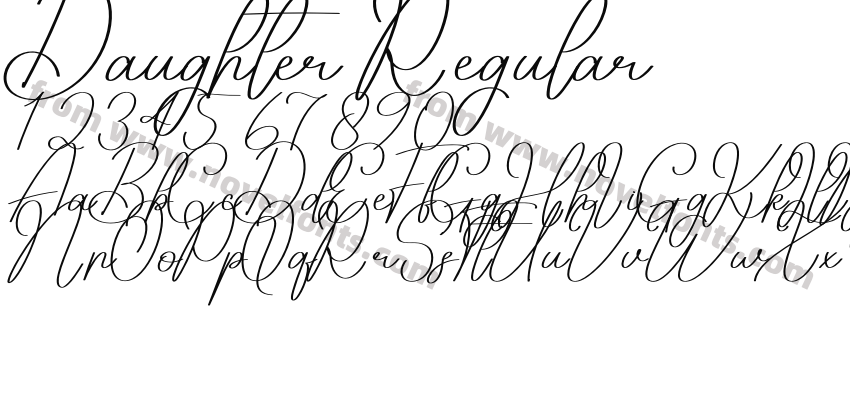 Daughter Regular
1 2 3 4 5 6 7 8 9 0
Aa Bb Cc Dd Ee Ff Gg Hh Ii Jj Kk
Nn Oo Pp Qq Rr Ss Tt Uu Vv Ww Xx
from www.novelfonts.com
from www.novelfonts.com